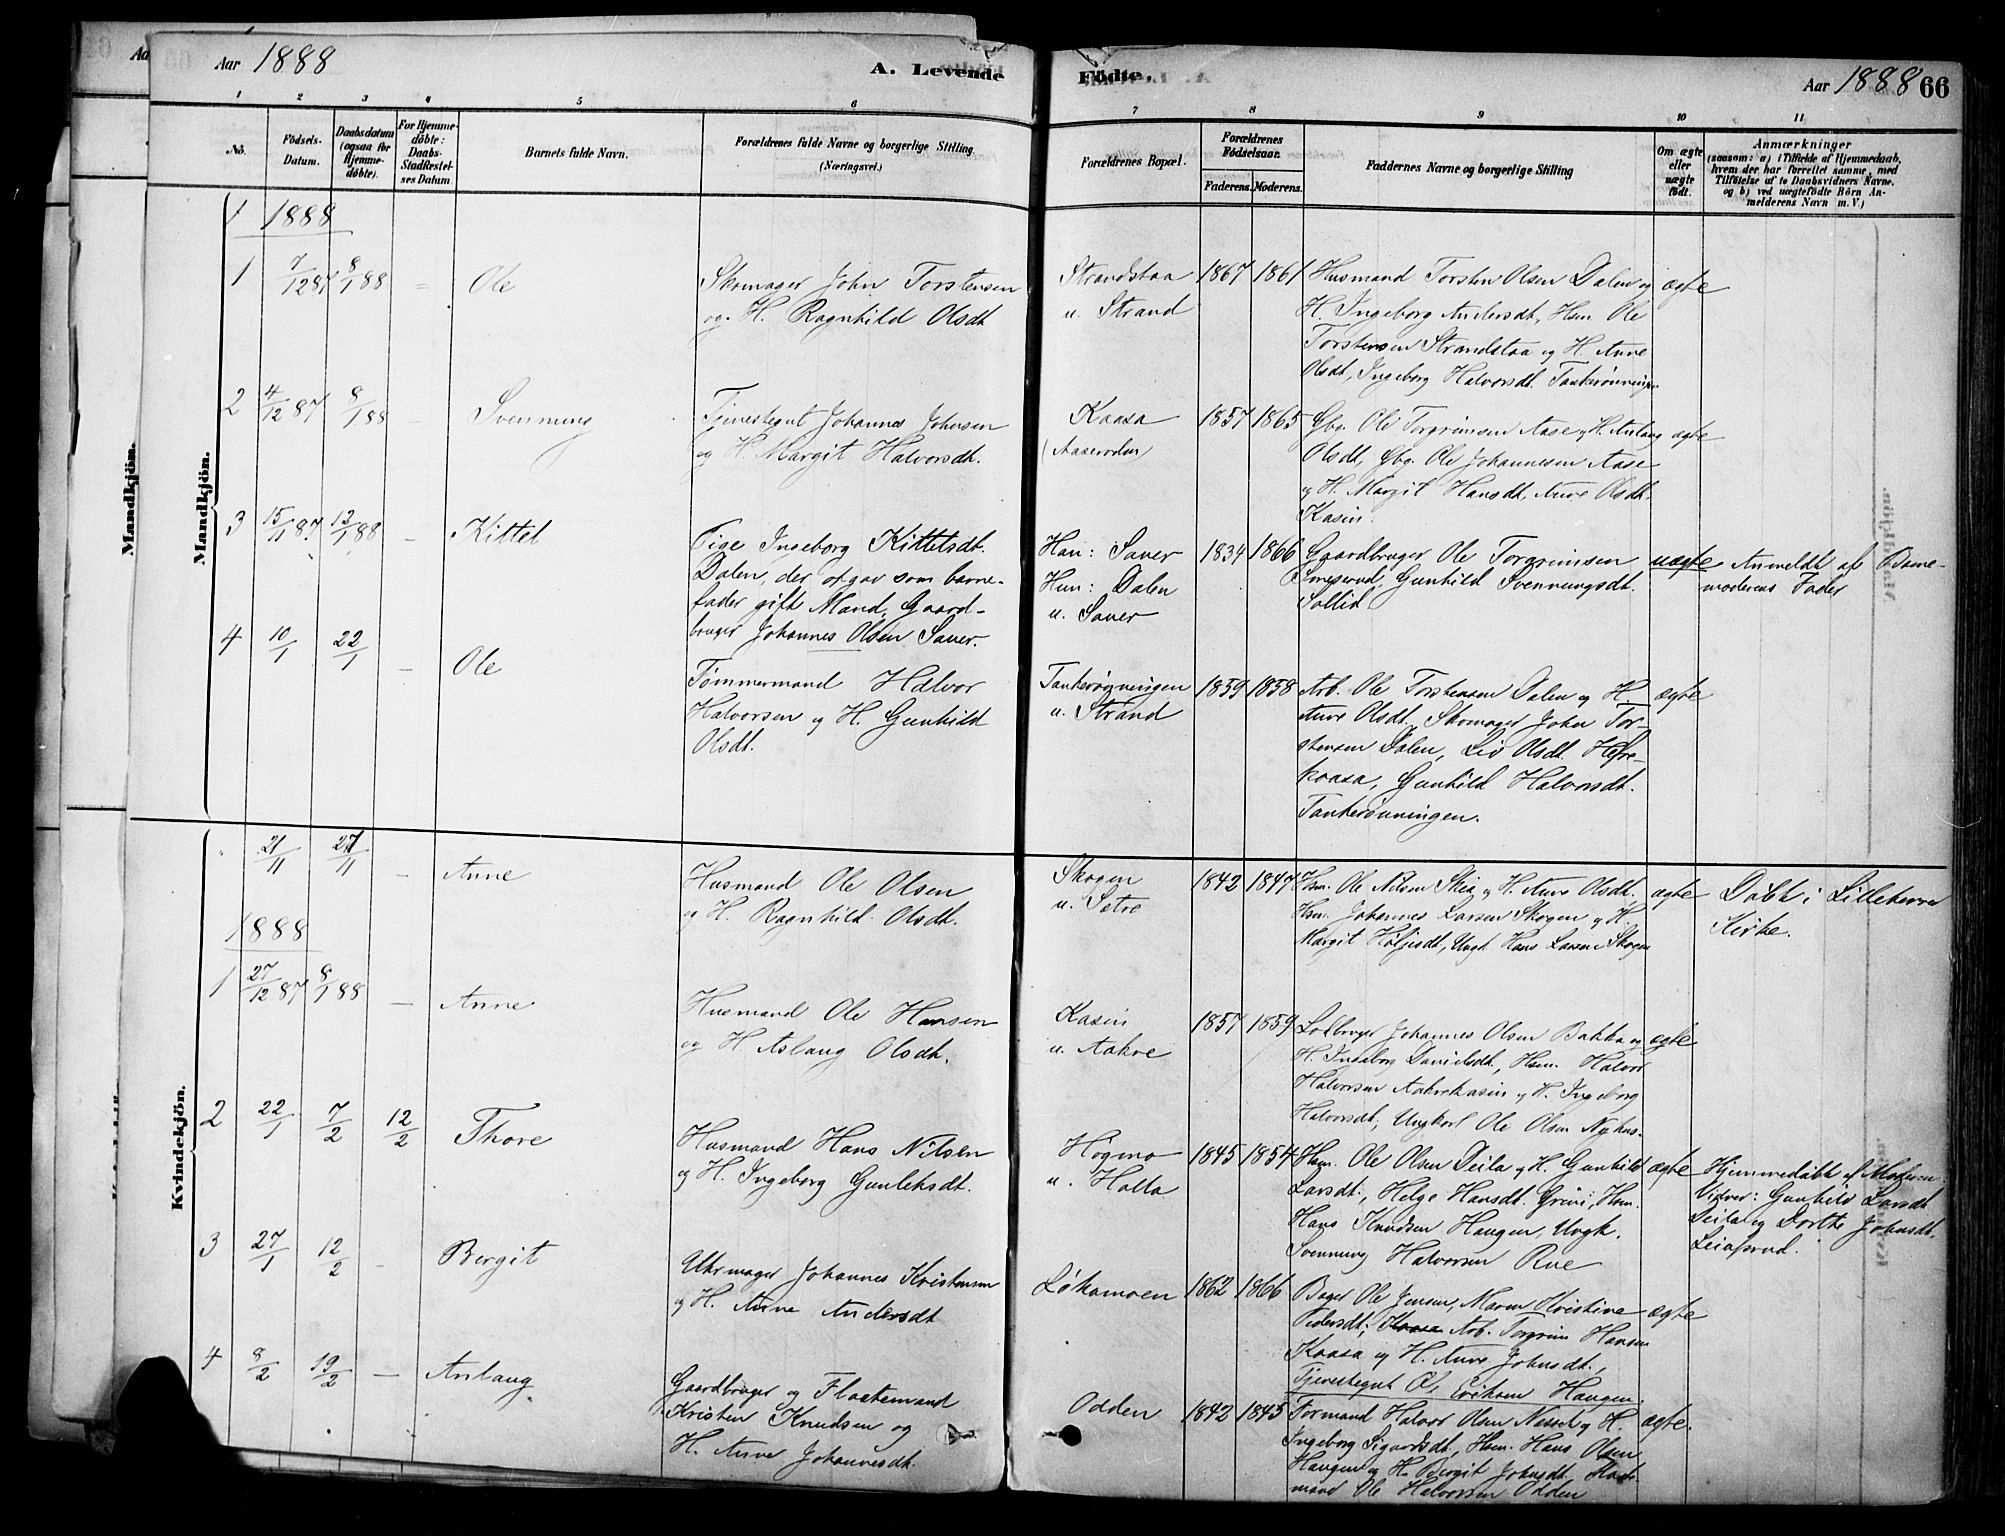 Aar 1888
A. Levende
Födte.
Aar 1888 66
1 2 3 4 5 6 7 8 9 10 11
No.
Födsels-
Datum.
Daabsdatum
(ogsaa for
Hjemme-
döbte).
For Hjemme-
döbte:
Daabs-
Stadfæstel-
ses Datum.
Barnets fulde Navn.
Forældrenes fulde Navne og borgerlige Stilling.
(Næringsvei.)
Forældrenes Bopæl.
Forældrenes
Födselsaar.
Faderens. Moderens.
Faddernes Navne og borgerlige Stilling
Om ægte
eller
uægte
födt.
Anmærkninger
(saasom: a) i Tilfælde af Hjemmedaab,
hvem der har forrettet samme, med
Tilföielse af to Daabsvidners Navne,
og b) ved uægtefödte Börn An-
melderens Navn m. V.)
Mandkjön.
Mandkjön.
1888
1 7/12 87 8/1 88 Ole
Skomager John Torstensen
og H. Ragnhild Olsdt
Strandstaa
u. Strand
1867 1861
Husmand Torsten Olsen Dalen og
H. Ingeborg Andersdt, Hsm Ole
Torstensen Strandstaa og H. Anne
Olsdt, Ingeborg Halvorsdt.
ægte
2 4/12 87 8/1 88 - Svennung
Tjenestegut Johannes Johnsen
og H. Margit Halvorsdt.
Kaasa
1857 1865
Gbg. Ole Torgrimsen Aase og H. Aslaug
Olsdt, Gbg. Ole Johannesen Aase
og H. Margit Hansdt, Anne Olsdt.
Kasin.
ægte
3 15/11 87 13/1 88 - Kittel
Pige Ingeborg Kittelsdt.
Dalen, der opgav som barne-
fader gift Mand, Gaard-
bruger Johannes Olsen Sauer.
Han: Sauer
Hun: Dalen
u. Sauer
1834 1866
Gaardbruger Ole Torgrimsen
Gunhild Svennungsdt.
Sollid
uægte
Anmeldt af Barne-
moderens Fader
4 10/1 22/1 - Ole
Tømmermand Halvor
Halvorsen og H. Gunhild
Olsdt.
u. Strand
1859 1858
Arb. Ole Torstensen Dalen og H
Anne Olsdt, Skomager John Tor-
stensen Dalen, Liv Olsdt. Hefre-
kaasa, Gunhild Halvorsdt.
Tankerønningen.
ægte
21/11 27/11 - Anne
Husmand Ole Olsen
og H. Ragnhild Olsdt.
Skogen
u. Sætre
1842 1847
Hsm. Ole Nilsen og H. Anne Olsdt.
Hsm. Johannes Larsen Skogen og H.
Margit Ungk Hans Larsen Skogen
ægte
Døbt i Lilleherre
Kirke.
1888
Kvindekjön.
1 27/12 87 8/1 88 - Anne
Husmand Ole Hansen
og H. Aslaug Olsdt.
Kasin
u. Aakre
1857 1859
Johannes Olsen Bakka og
H. Ingeborg Danielsdt, Hsm. Halvor
Halvorsen Aakrekasin og H. Ingeborg
Halvorsdt, Ungkarl Ole Olsen Nyhus.
ægte
2 22/1 7/2 12/2 Thore
Husmand Hans Nilsen
og H. Ingeborg Gunleksdt.
Høgmo
u. Holla
1845 1854
Hsm. Ole Olsen Deila og H. Gunhild
Larsdt, Helge Hansdt. Grini, Hsm.
Hans Knudsen Haugen, Ungk.
Svennung Halvorsen Rue
ægte
Hjemmedøbt af
Vidner: Gunhild Larsdt
Deila og Dorthe Johnsdt,
3 27/1 12/2 - Bergit
Uhrmager Johannes Kristensen
og H. Anne Andersdt
Løkamoen
1862 1866
Bager Ole Jensen, Maren Kristine
Pedersdt, Arb. Torgrim Hansen
Kaasa og H. Anne Johnsdt.,
Tjenestegut Ole Eriksen Haugen
ægte
4 8/2 19/2 - Aslaug
Gaardbruger og Fløtemand
Kristen Knudsen og
H. Anne Johannesdt.
Odden
1842 1845
Formand Halvor Olsen Næset og H.
Ingeborg Sigurdsdt, Hsm. Hans Olsen
Haugen og H. Bergit Johnsdt,
mand Ole Halvorsen Odden
ægte.